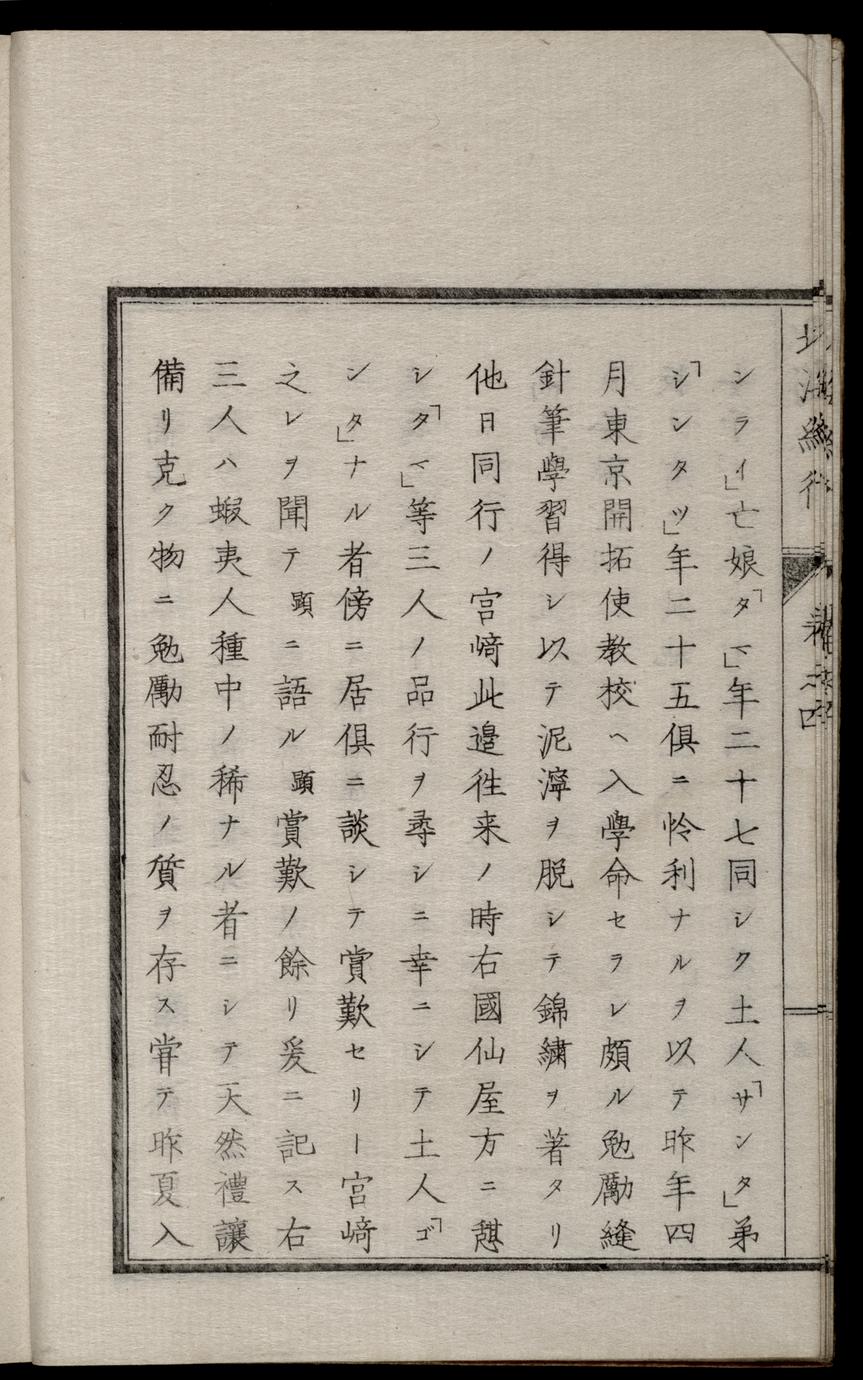 ンライ」亡娘「タマ」年二十七同シク土人「サンタ」弟
「シンタツ」年二十五俱ニ怜利ナルヲ以テ昨年四
月東京開拓使教校ヘ入學命セラレ頗ル勉勵縫
針筆學習得シ以テ泥濘ヲ脱シテ錦繍ヲ著タリ
他日同行ノ宮﨑此邉徃来ノ時右國仙屋方ニ憇
シ「タマ」等三人ノ品行ヲ尋シニ幸ニシテ土人「ゴ
ンタ」ナル者傍ニ居俱ニ談シテ賞歎セリー宮﨑
之レヲ聞テ顕ニ語ル顕賞歎ノ餘リ爰ニ記ス右
三人ハ蝦夷人種中ノ稀ナル者ニシテ天然禮讓
備リ克ク物ニ勉勵耐忍ノ質ヲ存ス甞テ昨夏入